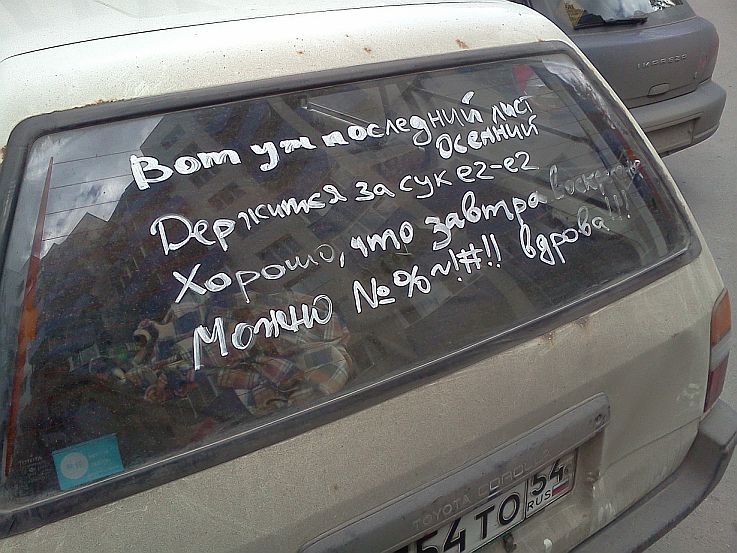 Вот уж последний лист
осенний
Держится за сук ег-ег
Хорошо, что завтра воскресенье
Можно №%~!#!! вдрова!!!
IMPREZA
TOYOTA COROLLA
54ТО 54
RUS